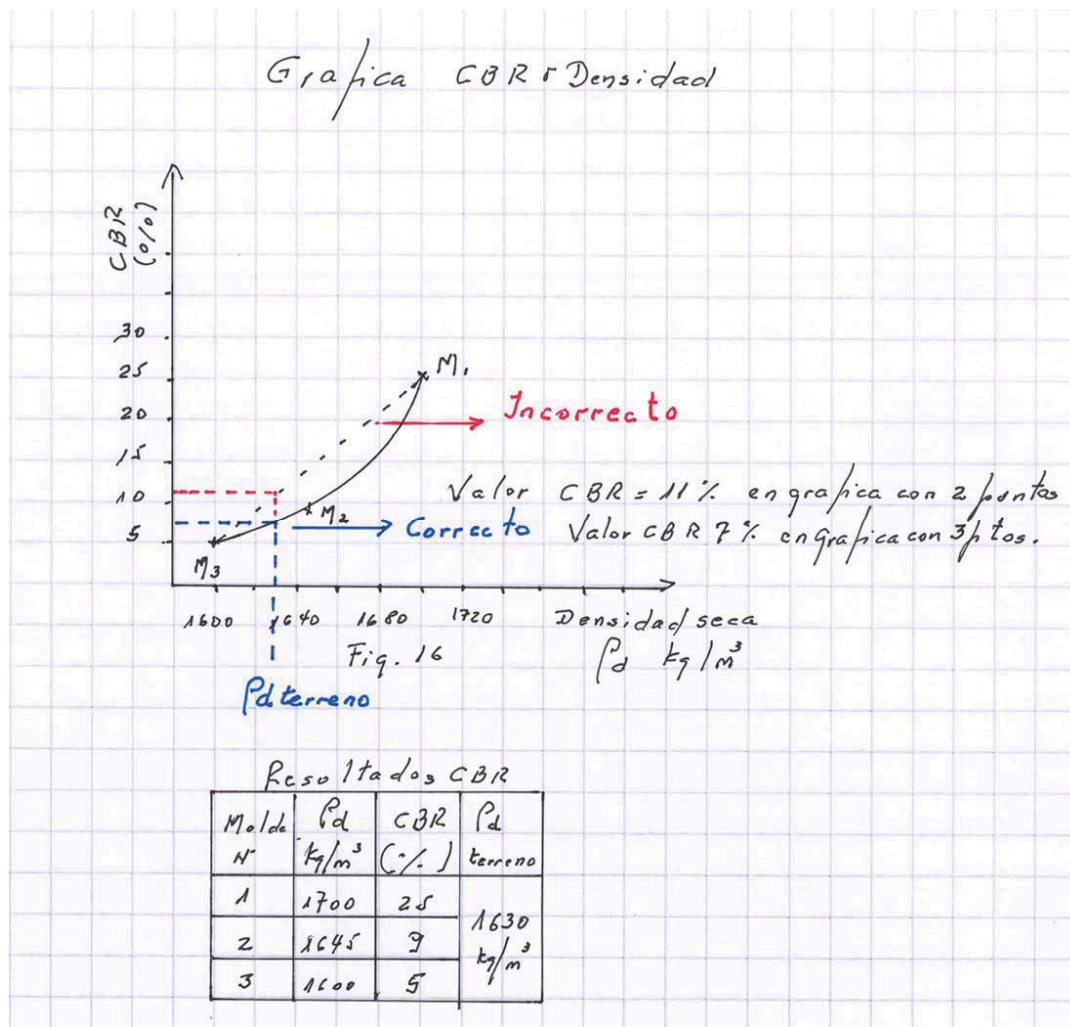 Grafica CBR v Densidad
CBR
(%)
30
25
20
15
10
5
M1
Incorrecto
Valor CBR = 11% en grafica con 2 puntos
M2
Correcto
Valor CBR 7% en grafica con 3ptos.
M3
1600
1640
1680
1720
Densidad seca
ρd kg/m³
Fig. 16
ρd terreno
Resoltados CBR
Molde N° ρd kg/m³ CBR (%) ρd terreno
1 1700 25
1630 kg/m³
2 1645 9
3 1600 5